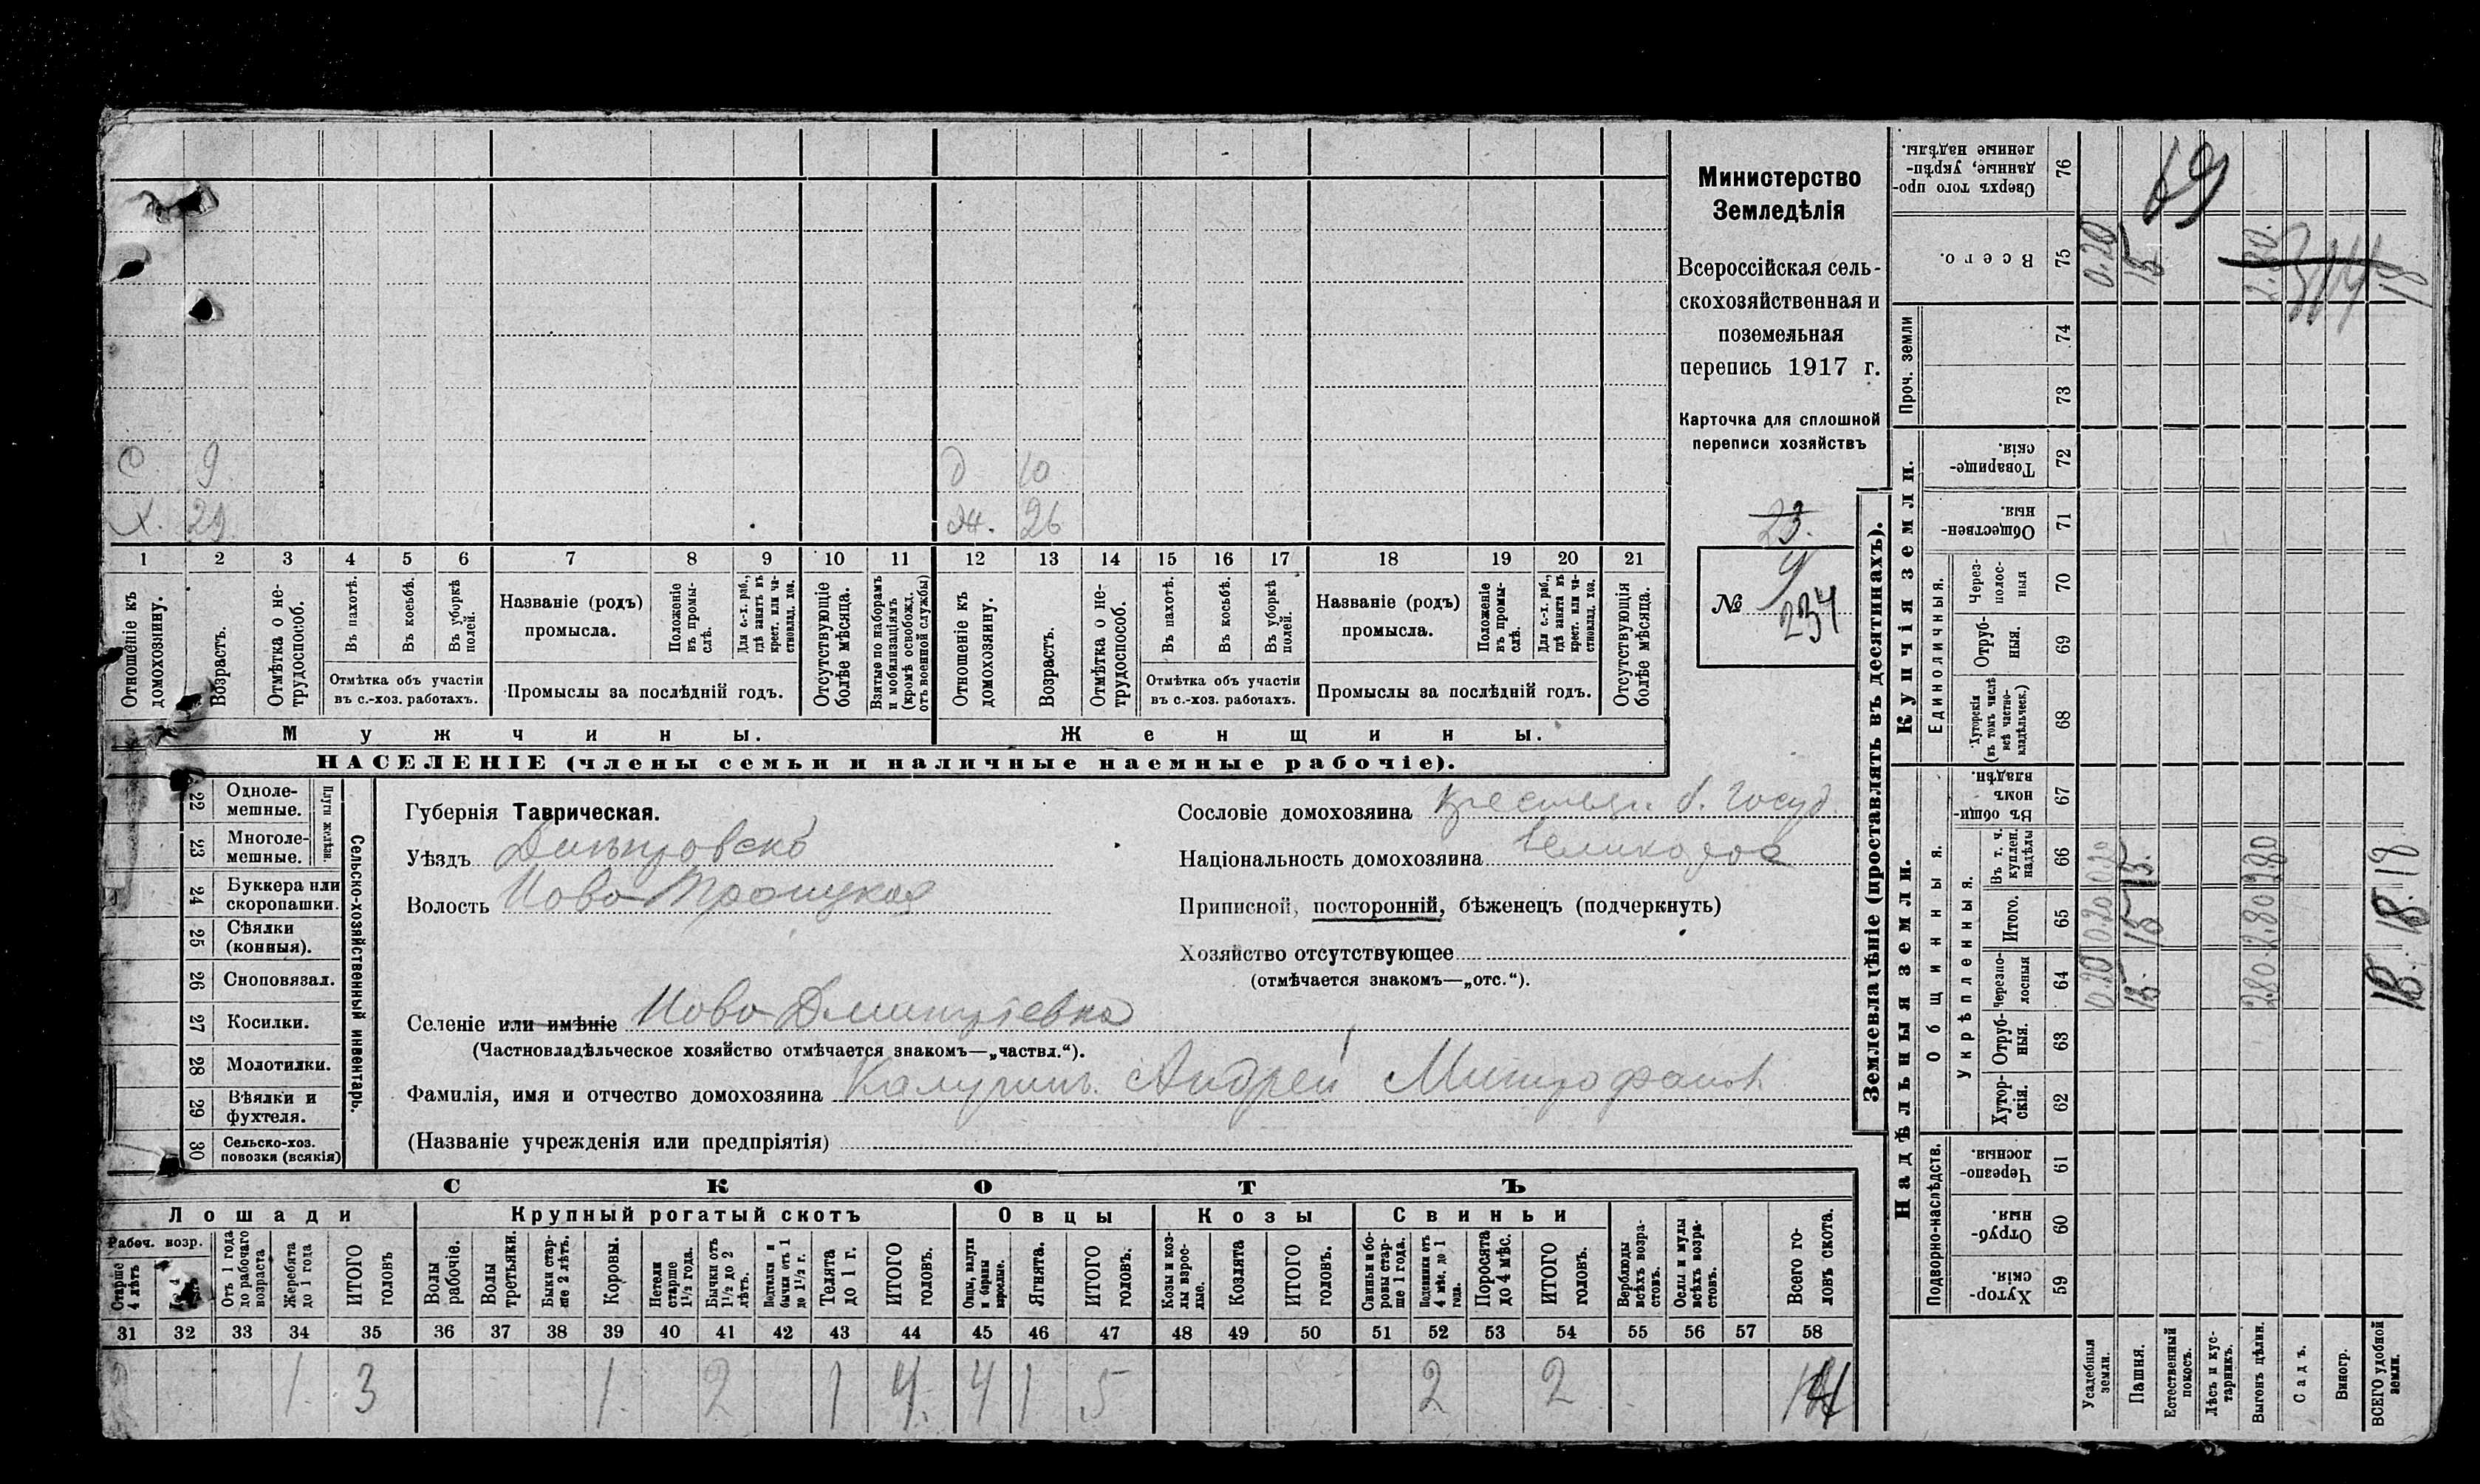 Министерство
Земледѣлія
Всероссійская сель-
скохозяйственная и
поземельная
перепись 1917 г.
Карточка для сплошной
переписи хозяйствъ
23.
№ 9
234
С 9. д 10
Х. 29 Ж. 26
1 2 3 4 5 6 7 8 9 10 11 12 13 14 15 16 17 18 19 20 21
Отношеніе къ домохозяину.
Возрастъ.
Отмѣтка о не-трудоспособ.
Въ пахотѣ.
Въ косьбѣ.
Въ уборкѣ полей.
Отмѣтка объ участіи
въ с.-хоз. работахъ.
Названіе (родъ)
промысла.
Положеніе въ промы-слѣ.
Для с.-х. раб., гдѣ занятъ въ крест. или ча-стновлад. хоз.
Промыслы за послѣдній годъ.
Отсутствующіе болѣе мѣсяца.
Взятые по наборамъ и мобилизаціямъ (кромѣ освобожд. отъ военной службы)
Отношеніе къ домохозяину.
Возрастъ.
Отмѣтка о не-трудоспособ.
Въ пахотѣ.
Въ косьбѣ.
Въ уборкѣ полей.
Отмѣтка объ участіи
въ с.-хоз. работахъ.
Названіе (родъ)
промысла.
Положеніе въ промы-слѣ.
Для с.-х. раб., гдѣ занята въ крест. или ча-стновлад. хоз.
Промыслы за послѣдній годъ.
Отсутствующія болѣе мѣсяца.
Мужчины. Женщины.
НАСЕЛЕНІЕ (члены семьи и наличные наемные рабочіе).
Сельско-хозяйственный инвентарь.
Плуги желѣзн.
22 Одноле-мешные.
23 Многоле-мешные.
24 Буккера или скоропашки.
25 Сѣялки (конныя).
26 Сноповязал.
27 Косилки.
28 Молотилки.
29 Вѣялки и фухтеля.
30 Сельско-хоз. повозки (всякія)
Губернія Таврическая.
Уѣздъ Днѣпровскѣ
Волость Ново Троицкая
Селеніе или имѣніе Ново Дмитріевка
(Частновладѣльческое хозяйство отмѣчается знакомъ—„частвл.“).
Фамилія, имя и отчество домохозяина Калугинъ Андрей Митрофанов
(Названіе учрежденія или предпріятія)
Сословіе домохозяина крестьян. б. госуд.
Національность домохозяина великорос
Приписной, посторонній, бѣженецъ (подчеркнуть)
Хозяйство отсутствующее
(отмѣчается знакомъ—„отс.“).
СКОТЪ
Лошади Крупный рогатый скотъ Овцы Козы Свиньи
Рабоч. возр.
Старше 4 лѣтъ
Отъ 1 года до рабочаго возраста
Жеребята до 1 года
ИТОГО головъ
Волы рабочіе.
Волы третьяки.
Быки стар-ше 2 лѣтъ.
Коровы.
Нетели старше 1½ года.
Бычки отъ 1½ до 2 лѣтъ.
Подтелки и бычки отъ 1 до 1½ г.
Телята до 1 г.
ИТОГО головъ.
Овцы, валухи и бараны взрослые.
Ягнята.
ИТОГО головъ.
Козы и коз-лы взрос-лые.
Козлята
ИТОГО головъ.
Свиньи и бо-ровы стар-ше 1 года.
Подсвинки отъ 4 мѣс. до 1 года.
Поросята до 4 мѣс.
ИТОГО головъ.
Верблюды всѣхъ возра-стовъ.
Ослы и мулы всѣхъ возра-стовъ.
Всего го-ловъ скота.
31 32 33 34 35 36 37 38 39 40 41 42 43 44 45 46 47 48 49 50 51 52 53 54 55 56 57 58
2 1. 3 1. 2 1 4. 4 1 5 2 2 14
Землевладѣніе (проставлять въ десятинахъ).
Купчія земли.
Надѣльныя земли.
Проч. земли
Единоличныя.
Общинныя.
Укрѣпленныя.
Подворно-наслѣдств.
76 Сверхъ того про-данные, укрѣп-ленные надѣлы.
75 Всего. 0.20 15 2.80. 18
74
73
72 Товарище-скія
71 Обществен-ныя.
70 Через-полос-ныя
69 Отруб-ныя.
68 Хуторскія (въ томъ числѣ всѣ частно-владѣльческ.)
67 Въ общин-номъ владѣн.
66 Въ т. ч. куплен. надѣлы 0.20 15. 2.80 18
65 Итого. 0.20 15 2.80 18.
64 Черезпо-лосныя 0.20 15. 2.80. 18.
63 Отруб-ныя.
62 Хутор-скія.
61 Черезпо-лосныя.
60 Отруб-ныя.
59 Хутор-скія.
Усадебныя земли.
Пашня.
Естественный покосъ.
Лѣсъ и кус-тарникъ.
Выгонъ цѣлин.
Садъ.
Виногр.
ВСЕГО удобной земли.
69
314